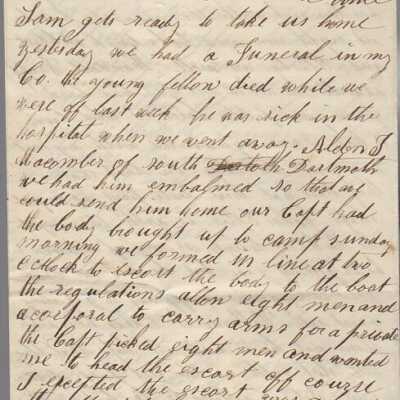 Sam gets ready to take us home
yesterday we had a Funeral in my
Co. the young fellow died while we
were off last week he was sick in the
hospital when we went away. Alden T
Macomber of south Dartmoth
we had him embalmed so that we
could send him home our Capt had
the body brought up to camp sunday
morning we formed in line at two
oclock to escort the body to the boat
the regulations alow eight men and
a corporal to carry arms for a private
the Capt picked eight men and wanted
me to head the escort off course
I excepted the escort was